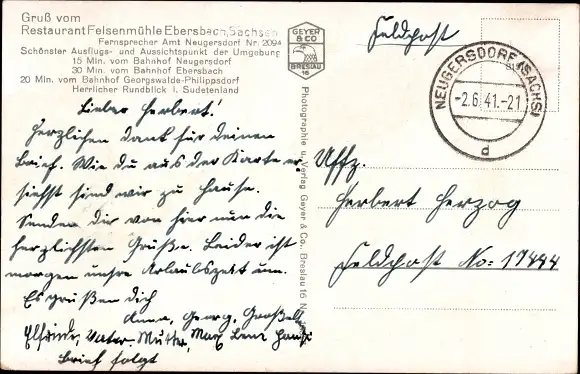 Gruß vom
Restaurant Felsenmühle Ebersbach, Sachsen
Fernsprecher Amt Neugersdorf Nr. 2094
Schönster Ausflugs- und Aussichtspunkt der Umgebung
15 Min. vom Bahnhof Neugersdorf
30 Min. vom Bahnhof Ebersbach
20 Min. vom Bahnhof Georgswalde-Philippsdorf
Herrlicher Rundblick i. Sudetenland
Lieber Herbert!
Herzlichen Dank für deinen
Brief. Wie du aus der Karte er-
siehst sind wir zu Hause.
Senden dir von hier nun die
herzlichsten Grüße. Leider ist
morgen unsre Urlaubszeit um.
Es grüßen dich
Anna, Georg,
Elfriede, Vater, Mutter, Max Lene
Brief folgt
GEYER
& CO
BRESLAU
16
Photographie u. Verlag Geyer & Co., Breslau 16
Feldpost
NEUGERSDORF (SACHS)
-2.6.41.-21
d
Uffz.
Herbert Herzog
Feldpost No: 17444